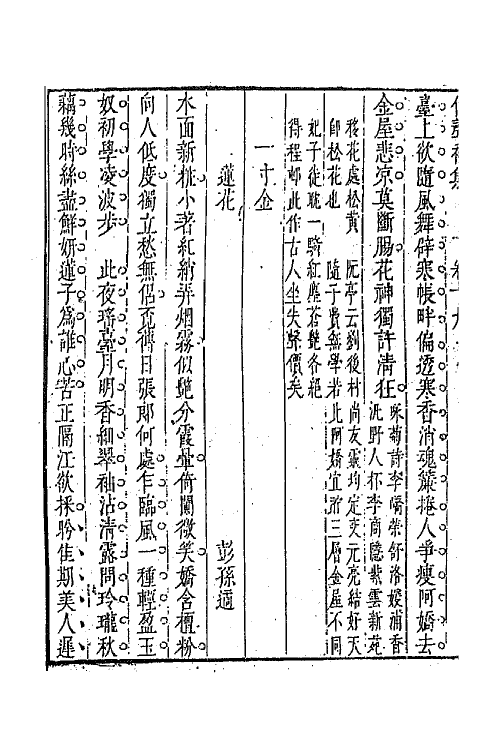 臺上欲隨風舞辟寒帳畔偏透寒香消魂簾捲人爭瘦阿嬌去
金屋悲凉莫斷腸花神獨許清狂
采菊詩李嶠榮舒洛媛浦香
沘野人杯李商隱紫雲新苑
移花處松黃 阮亭云劉後村尚友靈均定交元亮結好天
卽松花也 隨子貫無學若此阿嬌宜貯三層金屋不同
妃子徒眈一騎紅塵蒼艷各絕
得程邨此作古人坐失聲價矣
一寸金
蓮花 彭孫遹
水面新粧小著紅綃弄烟霧似艷分霞暈倚闌微笑嬌含檀粉
向人低度獨立愁無侶㐮儔日張郎何處乍臨風一種輕盈玉
奴初學凌波步 此夜瑤臺月明香細翠袖沾清露問玲瓏秋
藕幾時絲盡鮮妍蓮子爲誰心苦正隔江欲採吟佳期美人遲